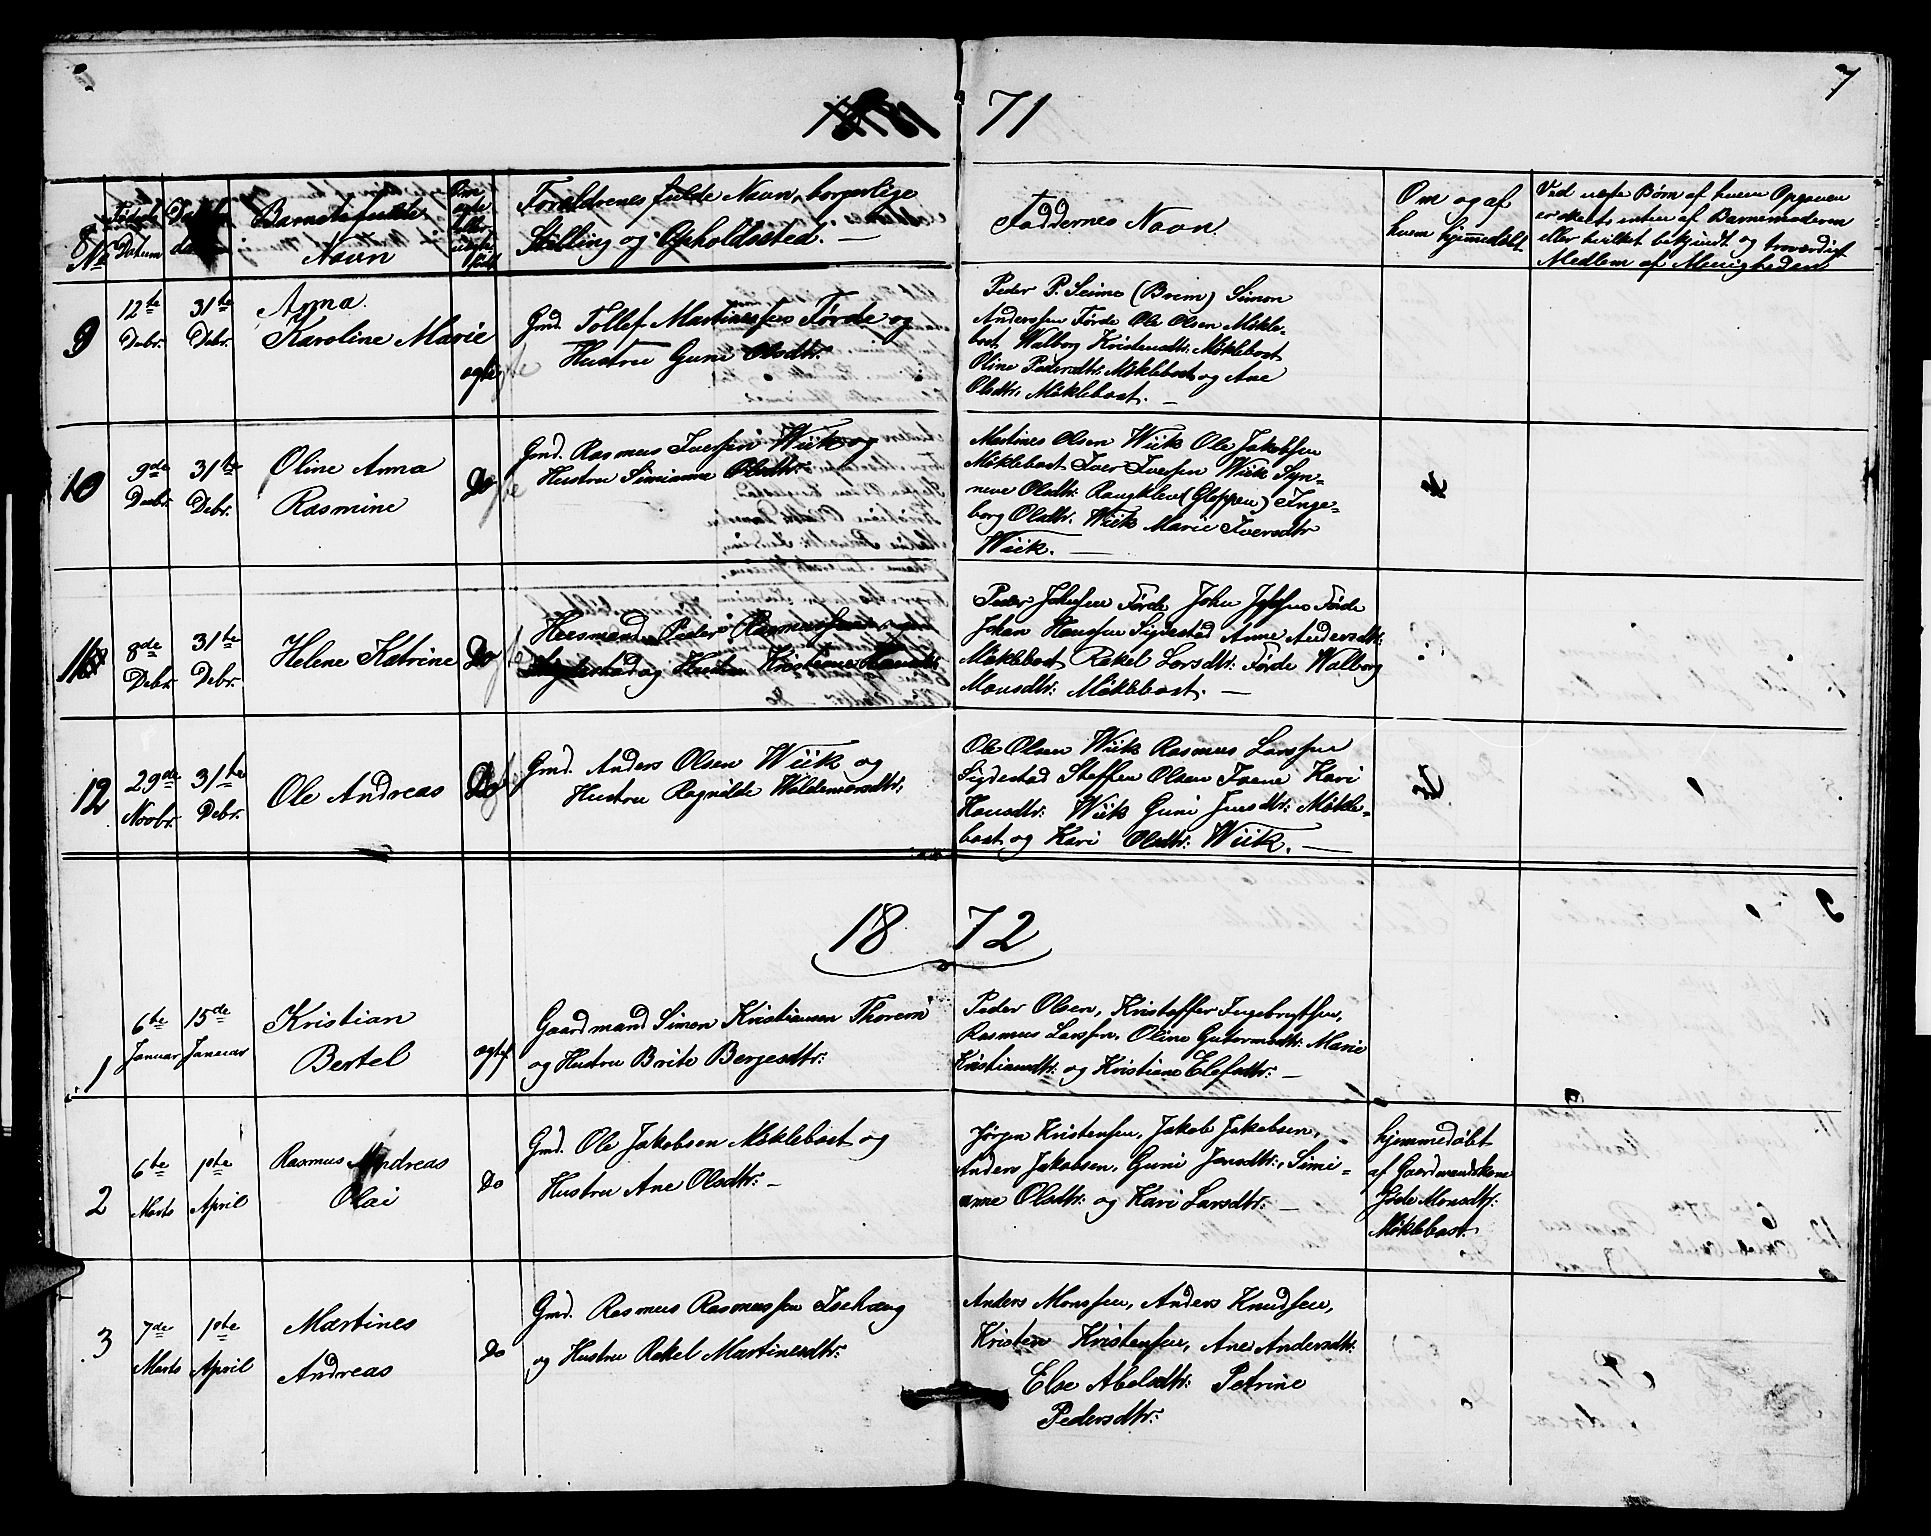 71
7
No
Fødsels Datum
Daabs datum
Barnets fulde
Navn
Om ægte eller uægte født
Forældrenes fulde Navn, borgerlige
Stilling og Opholdssted. —
Faddernes Navn.
Om og af
hvem hjemmedøbt
Ved uægte Børn af hvem Opgaven
er skeet, enten af Barnemoderen
eller hvilket bekjendt og troværdigt
Medlem af Menigheden
9
12te Debr.
31te Debr.
Anna
Karoline Marie
ægte
Gmd. Tollef Martinussen Førde og
Hustru Guni Olsdtr:
Peder P. Seime (Brem) Simon
Anderssen Førde Ole Olsen Møkle-
bost Walborg Kristensdtr: Møklebost
Oline Pedersdtr: Møklebost og Ane
Olsdtr: Møklebost. —
10
9de Debr.
31te Debr.
Oline Anna
Rasmine
Do
Gmd. Rasmus Iversen Wiik og
Hustru Simianne Olsdtr:
Martines Olsen Wiik Ole Jakobsen
Møklebost Iver Iversen Wiik Syn-
neve Olsdtr: (Gloppen) Inge-
borg Olsdtr. Wiik Marie Iversdtr
Wiik. —
11
8de Debr.
31te Debr.
Helene Katrine
Do
Huusmand Peder Rasmussen
og Hustru Kristiane
Peder Førde John Førde
Johan Hanssen Sigdestad Anne Andersdtr:
Møklebost Rakel Larsdtr: Førde Walborg
Monsdtr: Møklebost. —
12
29de Novbr.
31te Debr.
Ole Andreas
Do
Gmd. Anders Olsen Wiik og
Hustru Ragnilde Woldemarsdtr:
Ole Olsen Wiik Rasmus Larssen
Sigdestad Steffen Olsen Kari
Hansdtr: Wiik Guni Jensdtr: Møkle-
bost og Kari Olsdtr: Wiik. —
18 72
1
6te Januar
15de Januar
Kristian
Bertel
ægte
Gaardmand Simon Kristiansen Thorem
og Hustru Brite Bergesdtr:
Peder Olsen, Kristoffer Ingebrigtsen,
Rasmus Larssen, Oline Guttormsdtr: Marie
Kristiansdtr: og Kristiane Elefsdtr: —
2
6te Marts
1ste April
Rasmus Andreas
Olai
Do
Gmd. Ole Jakobsen Møklebost og
Hustru Ane Olsdtr: —
Jørgen Kristensen, Jakob Jakobsen,
Anders Jakobsen, Guni Jensdtr:, Simi-
anne Olsdtr: og Kari Larsdtr: —
hjemmedøbt
af Gaardmandskone
Monsdtr:
Møklebost.
3
7de Marts
1ste April
Martines
Andreas
Do
Gmd. Rasmus Rasmussen Isehaug
og Hustru Rakel Martinesdtr:
Anders Monssen, Anders Knudsen,
Kristen Kristensen, Ane Andersdtr:
Else Abelsdtr: Petrine
Pedersdtr: